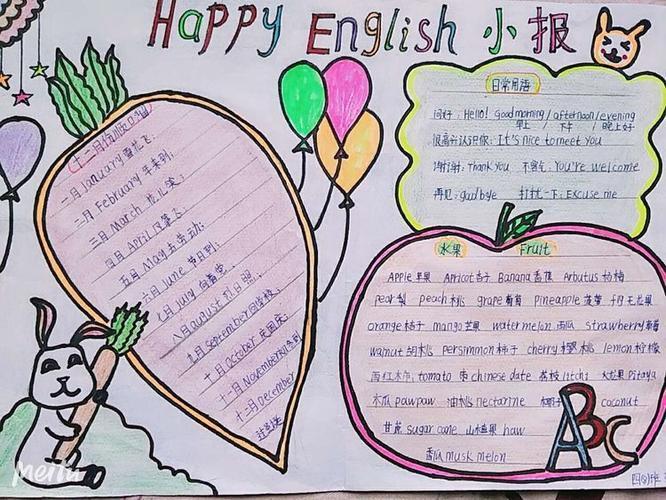 Happy English 小报
十二月份顺口溜
一月January雪花飞;
二月February年来到;
三月March
四月April风筝飞
五月May去劳动;
六月June节日到;
七月July向着党;
八月august烈日照;
九月september回学校;
十月october庆国庆;
十一月November
十二月December
日常用语
问好: Hello! Good morning / afternoon / evening
早上 / 下午 / 晚上好
很高兴认识你: It's nice to meet you
谢谢: Thank you 不客气: You're welcome
再见: goodbye 打扰一下: Excuse me
水果 Fruit
Apple 苹果 Apricot 杏子 Banana 香蕉 Arbutus 杨梅
pear 梨 peach 桃 grape 葡萄 pineapple 菠萝
orange 桔子 mango 芒果 watermelon 西瓜 strawberry 草莓
walnut 胡桃 persimmon 柿子 cherry 樱桃 lemon 柠檬
西红柿 tomato 枣 chinese date 荔枝 litchi 火龙果 Pitaya
木瓜 pawpaw 油桃 nectarine 椰子 coconut
甘蔗 sugar cane 山楂果 haw
香瓜 musk melon
ABC
Meitu